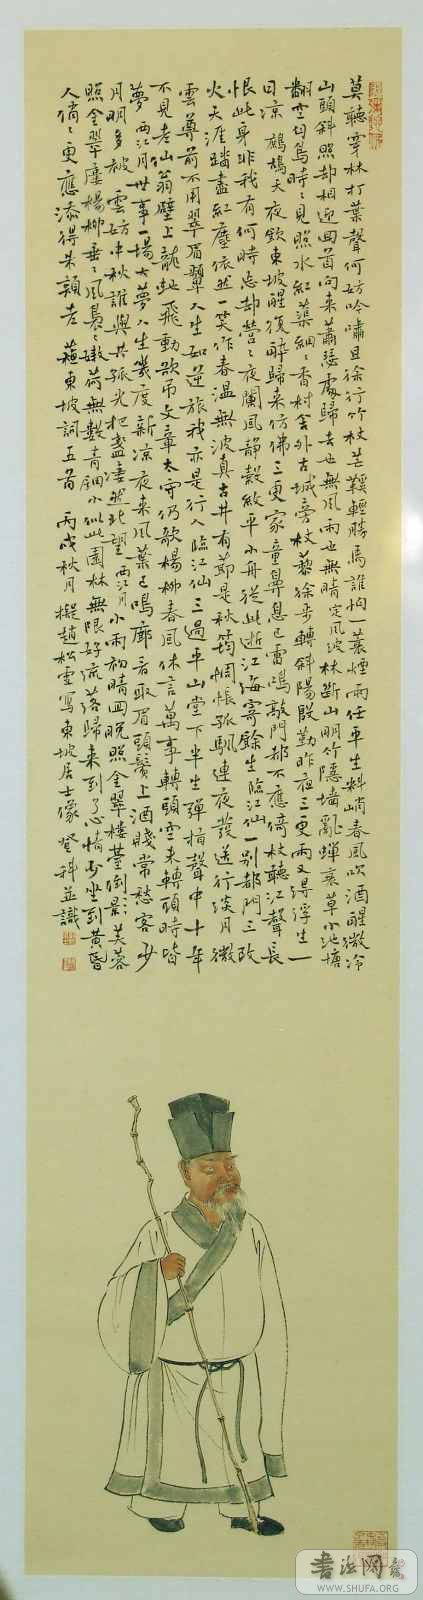 莫聽穿林打葉聲何妨吟嘯且徐行竹杖芒鞵輕勝馬誰怕一蓑煙雨任平生料峭春風吹酒醒微冷
山頭斜照却相迎回首向來蕭瑟處歸去也無風雨也無晴定風波林斷山明竹隱墻亂蟬衰草小池塘
翻空白鳥時〻見照水紅蕖細〻香村舍外古城旁杖藜徐步轉斜陽殷勤昨夜三更雨又得浮生一
日凉鷓鴣天夜飲東坡醒復醉歸來仿佛三更家童鼻息已雷鳴敲門都不應倚杖聽江聲長
恨此身非我有何時忘却營〻夜闌風靜縠紋平小舟從此逝江海寄餘生臨江仙一別都門三改
火天涯踏盡紅塵依然一笑作春温無波真古井有節是秋筠惆悵孤帆連夜發送行淡月微
雲尊前不用翠眉顰人生如逆旅我亦是行人臨江仙三過平山堂下半生彈指聲中十年
不見老仙翁壁上龍蛇飛動欲吊文章太守仍歌楊柳春風休言萬事轉頭空未轉頭時皆
夢西江月世事一場大夢人生幾度新凉夜來風葉已鳴廊看取眉頭鬢上酒賤常愁客少
月明多被雲妨中秋誰與共孤光把盞淒然北望西江月小雨初晴回晚照金翠樓臺倒影芙蓉
照金翠楊柳垂〻風裊〻嫩荷無數青鈿小似此園林無限好流落歸來到了心情少坐到黃昏
人悄〻更應添得朱顏老蘇東坡詞五首丙戌秋月擬趙松雪寫東坡居士像登科並識
書法网
WWW.SHUFA.ORG